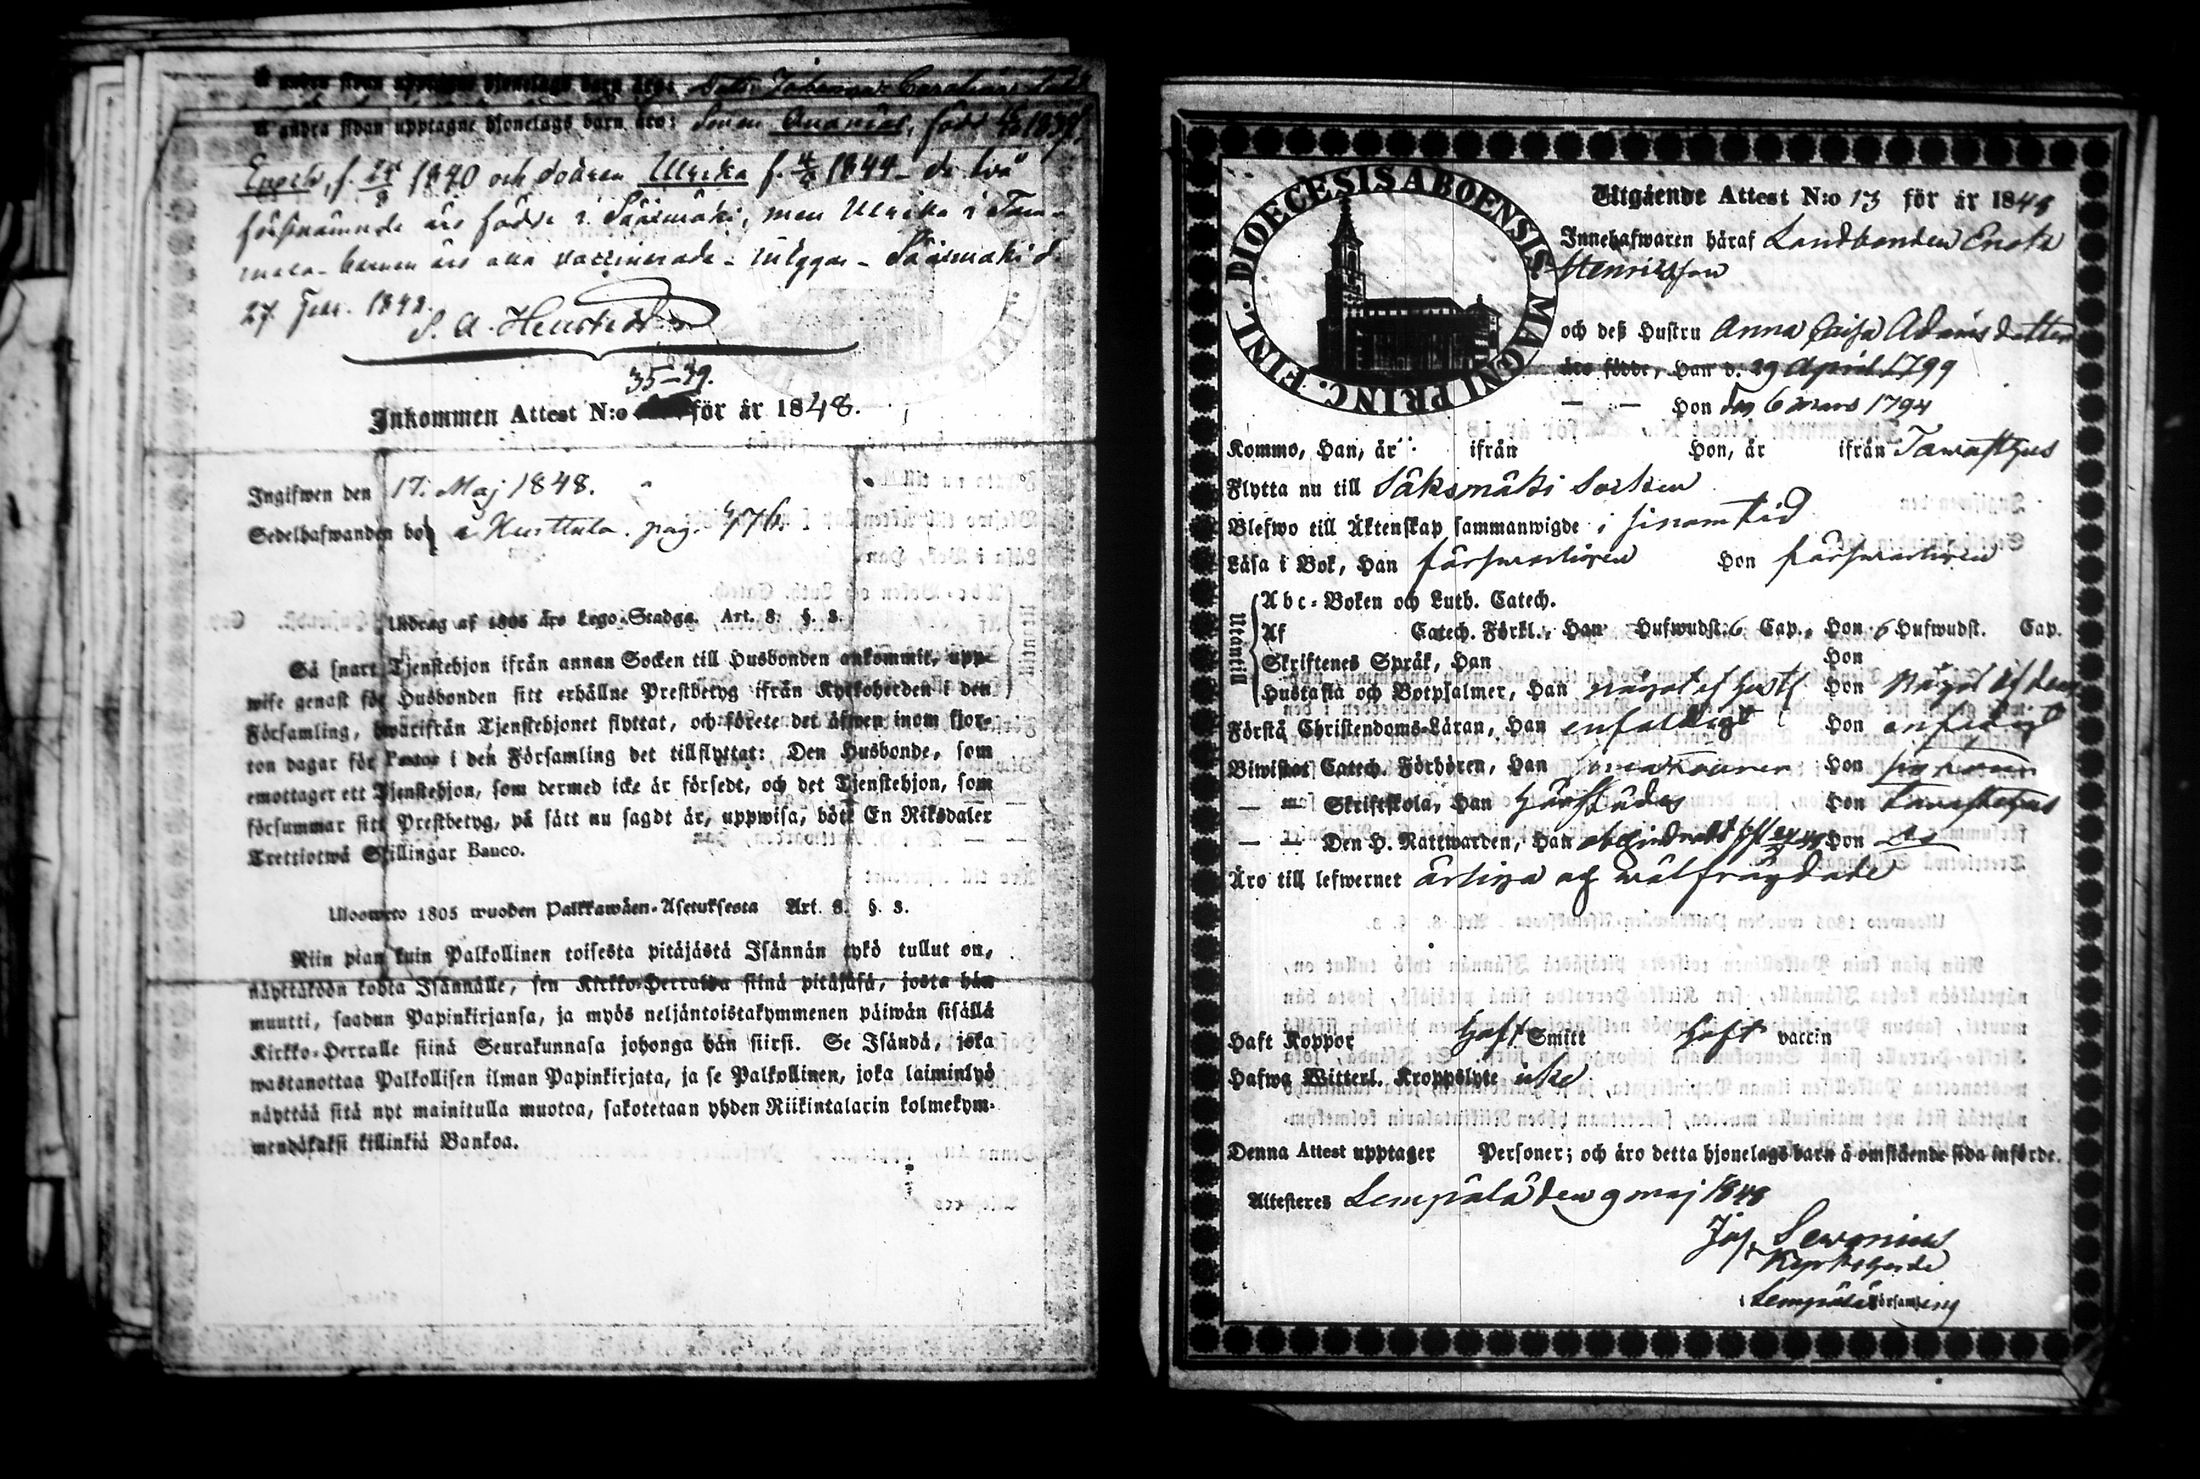 Å andra sidan upptagne hjonelags barn äro:
Å andra sidan upptagne hjonelags barn äro; Sonen född 1839
f. 24/8 1840 och dottren Ulrika f. 4/4 1844 – de två
förstnämnde äro födde i Sääsmäki, men Ulrika i Tam-
mela – barnen äro alla vaccinerade – intygar – Sääsmäki d.
27 Febr. 1848.
S. A.
35–39.
Inkommen Attest N:o för år 1848.
Ingifwen den 17. Maj 1848.
Sedelhafwanden bor pag. 476.
Utdrag af 1805 års Lego-Stadga. Art. 8. §. 3.
Så snart Tjenstehjon ifrån annan Socken till Husbonden ankommit, upp-
wise genast för Husbonden sitt erhållne Prestbetyg ifrån Kyrkoherden i den
Församling, hwarifrån Tjenstehjonet flyttat, och förete det äfwen inom fjor-
ton dagar för Pastor i den Församling det tillflyttat: Den Husbonde, som
emottager ett Tjenstehjon, som dermed icke är försedt, och det Tjenstehjon, som
försummar sitt Prestbetyg, på sätt nu sagdt är, uppwisa, böte En Riksdaler
Trettiotwå Skillingar Banco.
Uloswéto 1805 wuoden Palkkawäen-Asetuksesta Art. 8. §. 3.
Niin pian kuin Palkollinen toisesta pitäjästä Isännän tykö tullut on,
näyttäköön kohta Isännälle, sen Kirkko-Herralda siinä pitäjäsä, josta hän
muutti, saadun Papinkirjansa, ja myös neljäntoistakymmenen päiwän sisällä
Kirkko-Herralle siinä Seurakunnasa johonga hän siirsi. Se Isändä, joka
wastanottaa Palkollisen ilman Papinkirjata, ja se Palkollinen, joka laiminlyö
näyttää sitä nyt mainitulla muotoa, sakotetaan yhden Riikintalarin kolmekym-
mendäkaksi killinkiä Bankoa.
DIOECESIS ABOENSIS MAGNI PRINC. FINL.
Utgående Attest N:o 13 för år 1848
Innehafwaren häraf Landbonden Enok
Henriksson
och deß Hustru Anna Caisa Adamsdotter
äro födde, Han d. 29 April 1799
— — Hon den 6 mars 1794
Kommo, Han, år ifrån Hon, år ifrån Tawasthus
Flytta nu till Säksmäki Socken
Blefwo till Äktenskap sammanwigde i sinom tid
Läsa i Bok, Han förswarligen Hon förswarligen
Utantill
Abc-Boken och Luth. Catech.
Af Catech. Förkl., Han Hufwudst. 6 Cap., Hon 6 Hufwudst. Cap.
Skriftenes Språk, Han Hon
Hustafla och Botpsalmer, Han något af Hon något af dem
Förstå Christendoms-Läran, Han enfaldigt Hon enfaldigt
Biwistat Catech. Förhören, Han Hon
— — Skriftskola, Han Hon
— — Den H. Nattwarden, Han Hon
Äro till lefwernet ärliga och wälfrägdade
Haft Koppor haft Smitt haft vaccin
Hafwa Witterl. Kroppslyte icke
Denna Attest upptager Personer; och äro detta hjonelags barn å omstående sida införde.
Attesteres Lempälä den 9 maj 1848
Jos. Sevonius
Kyrkoherde
i Lempälä församling